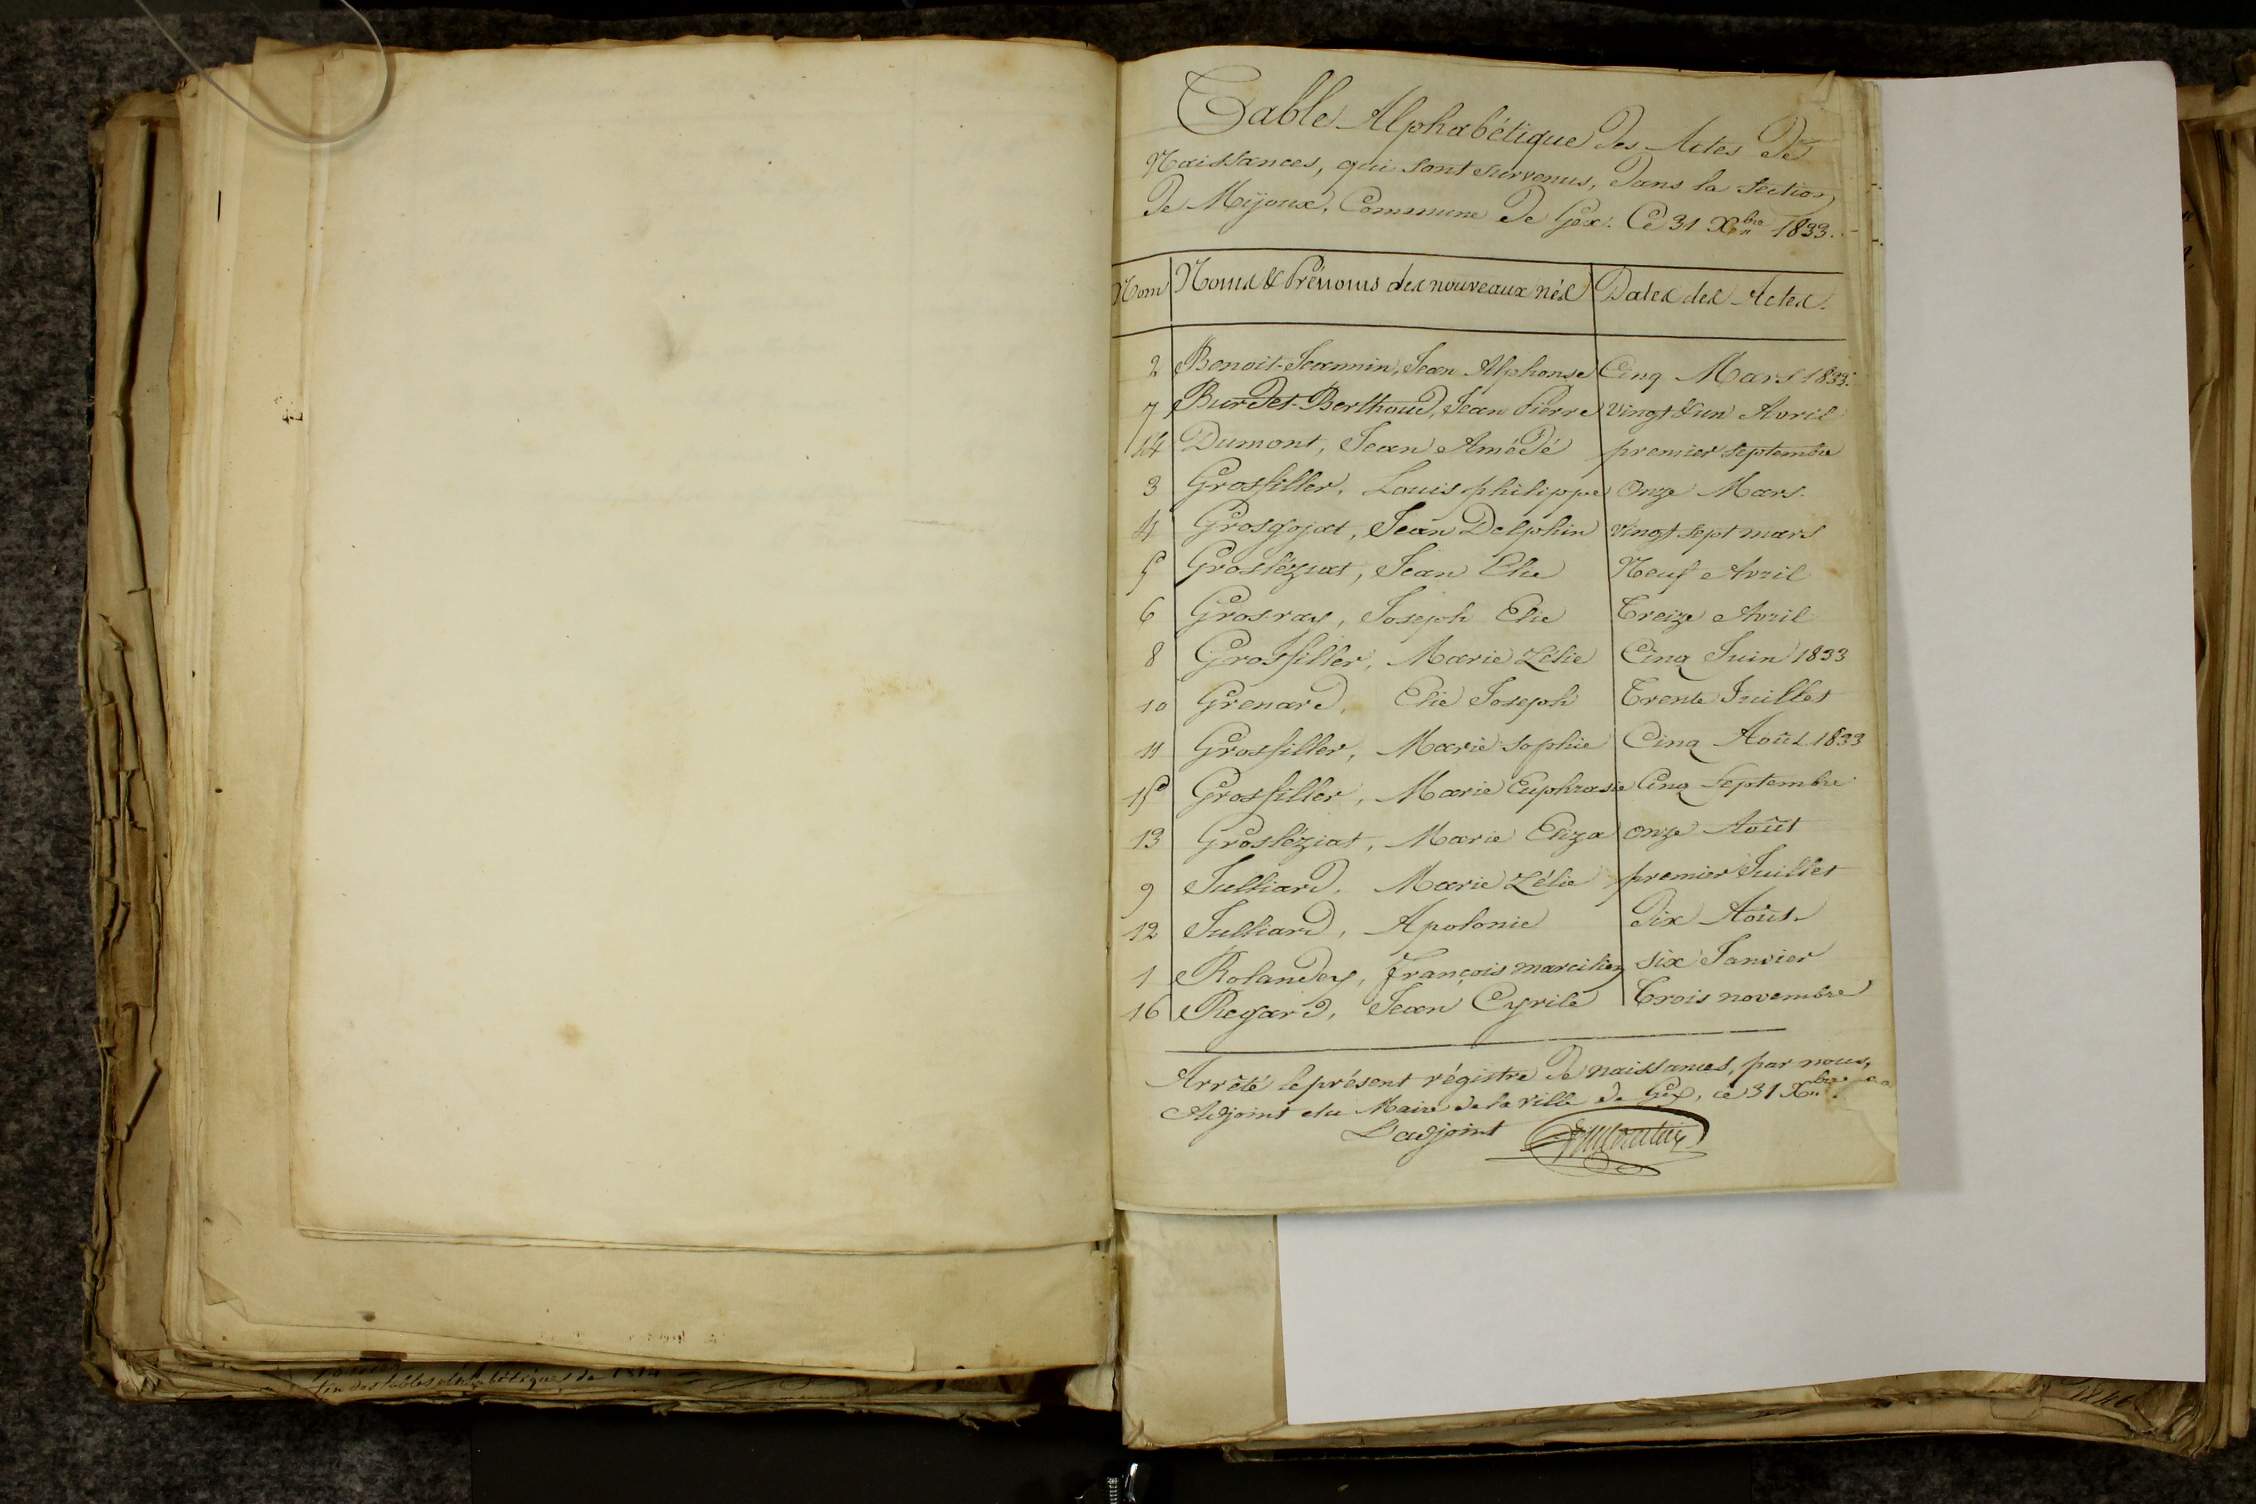 Table Alphabétique des Actes de
Naissances, qui sont survenus, dans la section
de Mijoux, Commune de Gex. Ce 31 Xbre 1833.
Nom Noms & Prénoms des nouveaux nés Dates des Actes.
2 Benoit-Jeannin, Jean Alphonse Cinq Mars 1833.
7 Burdet-Berthoud, Jean Pierre vingt & un Avril
14 Dumont, Jean Amédé premier septembre
3 Grosfiller, Louis philippe Onze Mars.
4 Grosgojat, Jean Delphin vingt sept mars
5 Grosléziat, Jean Elie Neuf Avril
6 Grosray, Joseph Elie Treize Avril
8 Grosfiller, Marie Zélie Cinq Juin 1833
10 Grenard, Elie Joseph Trente Juillet
11 Grosfiller, Marie sophie Cinq Août 1833
15 Grosfiller, Marie Euphrasie Cinq Septembre
13 Grosléziat, Marie Eliza onze Août
9 Julliard, Marie Zélie premier Juillet
12 Julliard, Apolonie Dix Août
1 Rolandey, François marcilien six Janvier
16 Regard, Jean Cyrile Trois novembre
Arrêté le présent régistre de naissances, par nous,
Adjoint du Maire de la ville de Gex, ce 31 Xbre
L'adjoint
fin des tables alphabétiques de